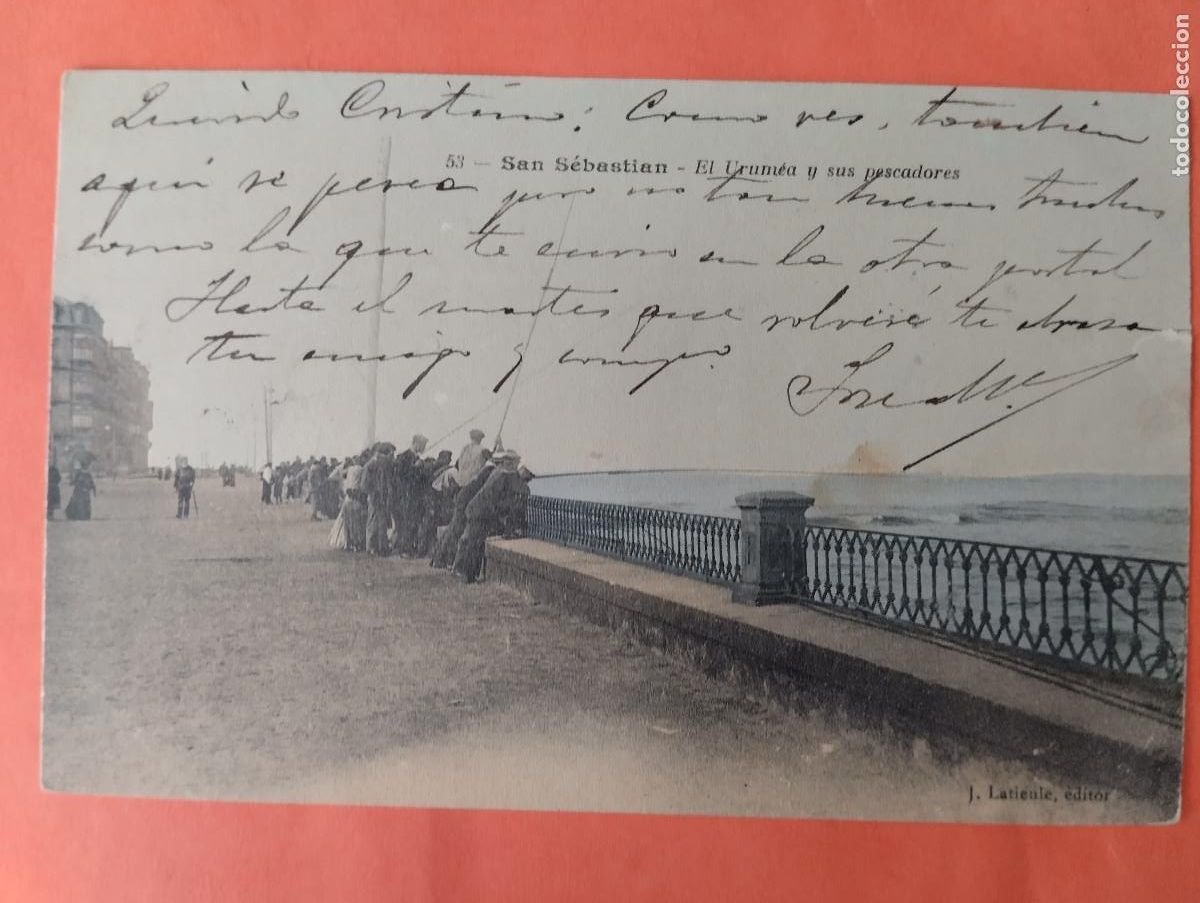 Querido Cristino: Como ves, tambien
53 — San Sébastian - El Uruméa y sus pescadores
aquí se pesca pero no tan buenas truchas
como la que te envio en la otra postal
Hasta el martes que volveré te abraza
tu amigo y compo.
J. Latieule, editor
todocoleccion